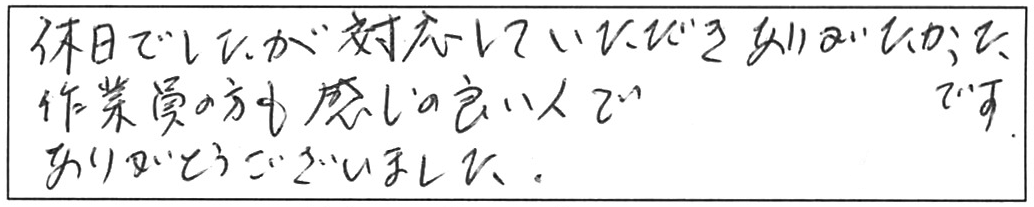 休日でしたが対応していただきありがたかった
です.
作業員の方も感じの良い人で
ありがとうございました.